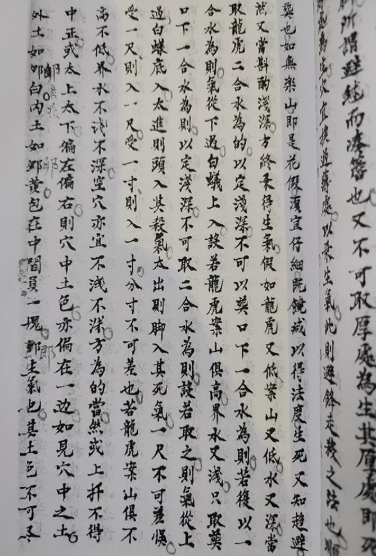 所謂避𥿄而湊簷也又不可取厚處為生其厚處即死
奠也如無樂山即是花假須宜仔細既饒減以得法度生死又知趨避
然又當斟酌淺深方終乘得生氣假如龍虎又低案山又低水又深當
取龍虎二合水為的以定淺深不可以奠口下一合水為則若後以一
合水為則氣從下過白蟻上入設若龍虎案山俱高界水又淺只取奠
口下一合水為則以定淺深不可取二合水為則設若取之則氣從上
過白蟻底入太進則頭入其殺氣太出則脚入其死氣一尺不可差悞
受一尺則入一尺受一寸則入一寸分寸不可差也若龍虎案山俱不
高不低界水不淺不深塋穴亦宜不淺不深方為的當然或上扦不得
中正或太上太下偏在偏右則穴中土色亦偏在一边如見穴中之土
外土如白内土如黄包在中間員一塊生氣也其土色不可